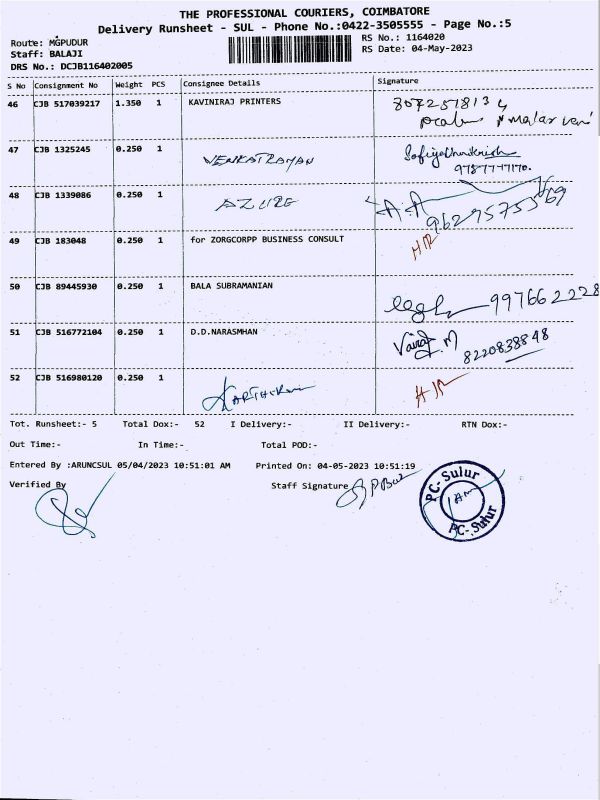 THE PROFESSIONAL COURIERS, COIMBATORE
Delivery Runsheet - SUL - Phone No.:0422-3505555 - Page No.:5
Route: MGPUDUR
RS No.: 1164020
Staff: BALAJI
RS Date: 04-May-2023
DRS No.: DCJB116402005
S No Consignment No Weight PCS Consignee Details Signature
46 CJB 517039217 1.350 1 KAVINIRAJ PRINTERS
47 CJB 1325245 0.250 1 VENKATRAMAN
9787777170.
48 CJB 1339086 0.250 1 AZURE A.A
49 CJB 183048 0.250 1 for ZORGCORPP BUSINESS CONSULT
50 CJB 89445930 0.250 1 BALA SUBRAMANIAN
9976622228
51 CJB 516772104 0.250 1 D.D.NARASMHAN
8220838848
52 CJB 516980120 0.250 1
Tot. Runsheet:- 5 Total Dox:- 52 I Delivery:- II Delivery:- RTN Dox:-
Out Time:- In Time:- Total POD:-
Entered By :ARUNCSUL 05/04/2023 10:51:01 AM Printed On: 04-05-2023 10:51:19
Verified By Staff Signature
PC- Sulur
PC- Sulur